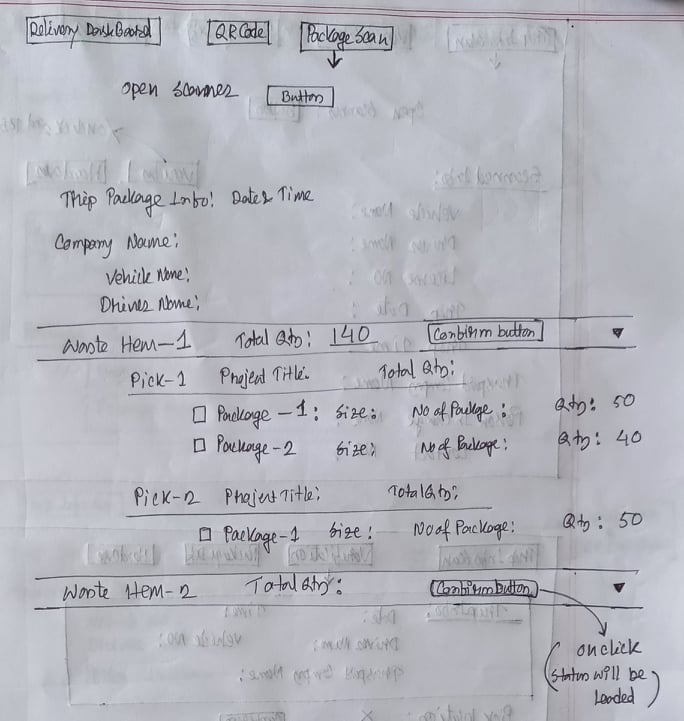 Delivery DashBoard QR Code Package Scan
Open Scanner Button
Trip Package Info: Date & Time
Company Name:
Vehicle Name:
Driver Name:
Waste Item-1 Total Qty: 140 Confirm button
Pick-1 Project Title: Total Qty:
Package -1: Size: No of Package: Qty: 50
Package-2 Size: No of Package: Qty: 40
Pick-2 Project Title: Total Qty:
Package-1 Size: No of Package: Qty: 50
Waste Item-2 Total Qty: Confirm button
on click
(Status will be
Loaded)